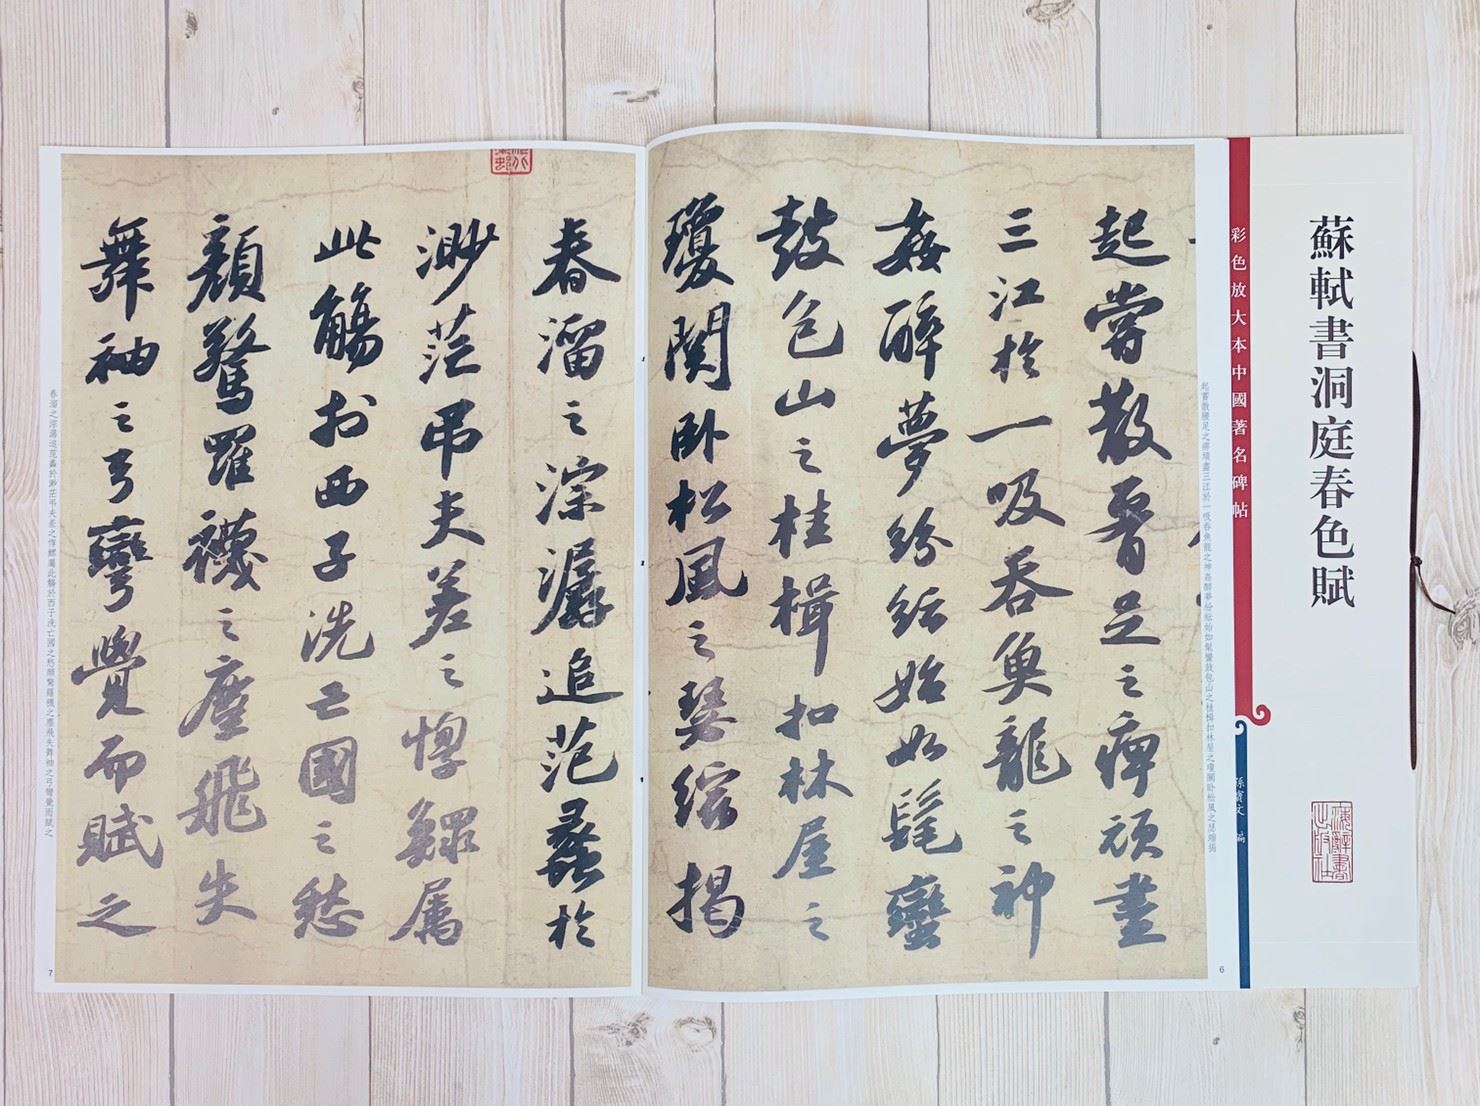 蘇軾書洞庭春色賦
上海辭書出版社
彩色放大本中國著名碑帖
孫寶文 編
起嘗散腰足之痺頑盡三江於一吸吞魚龍之神姦醉夢紛紜始如髦蠻鼓包山之桂楫扣林屋之瓊關卧松風之瑟縮揭
起嘗散腰足之痺頑盡
三江於一吸吞魚龍之神
姦醉夢紛紜始如髦蠻
鼓包山之桂楫扣林屋之
瓊關卧松風之瑟縮揭
6
春溜之淙潺追范蠡於
渺茫弔夫差之惸鰥屬
此觴於西子洗亡國之愁
顏驚羅襪之塵飛失
舞袖之弓彎覺而賦之
春溜之淙潺追范蠡於渺茫弔夫差之惸鰥屬此觴於西子洗亡國之愁顏驚羅襪之塵飛失舞袖之弓彎覺而賦之
7